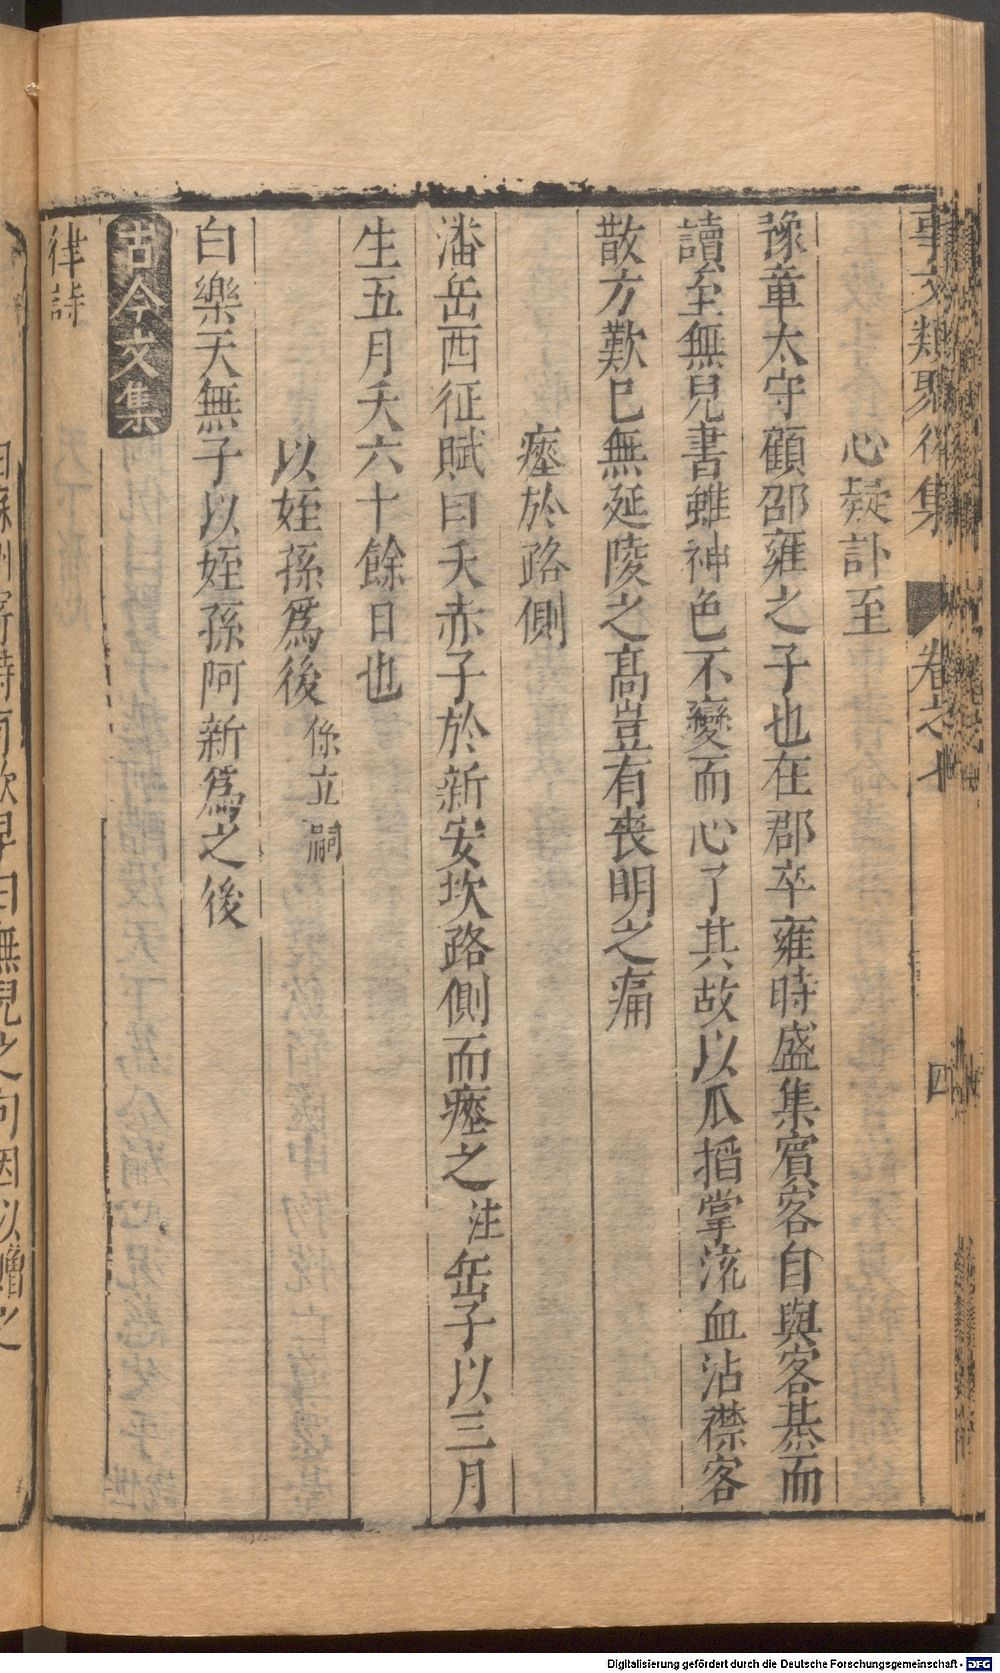 事文類聚後集 卷之七 四
心疑訃至
豫章太守顧邵雍之子也在郡卒雍時盛集賓客自與客棊而
讀至無兒書雖神色不變而心了其故以瓜搯掌流血沾襟客
散方歎已無延陵之髙豈有喪明之痛
瘞於路側
潘岳西征賦曰夭赤子於新安坎路側而瘞之注岳子以三月
生五月夭六十餘日也
以姪孫爲後係立嗣
白樂天無子以姪孫阿新爲之後
古今文集
律詩
Digitalisierung gefördert durch die Deutsche Forschungsgemeinschaft - DFG